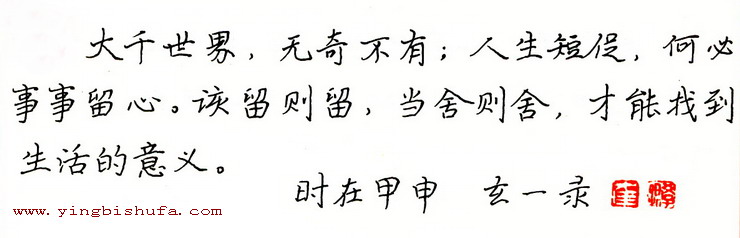 大千世界，无奇不有；人生短促，何必
事事留心。该留则留，当舍则舍，才能找到
生活的意义。
时在甲申 玄一录
www.yingbishufa.com